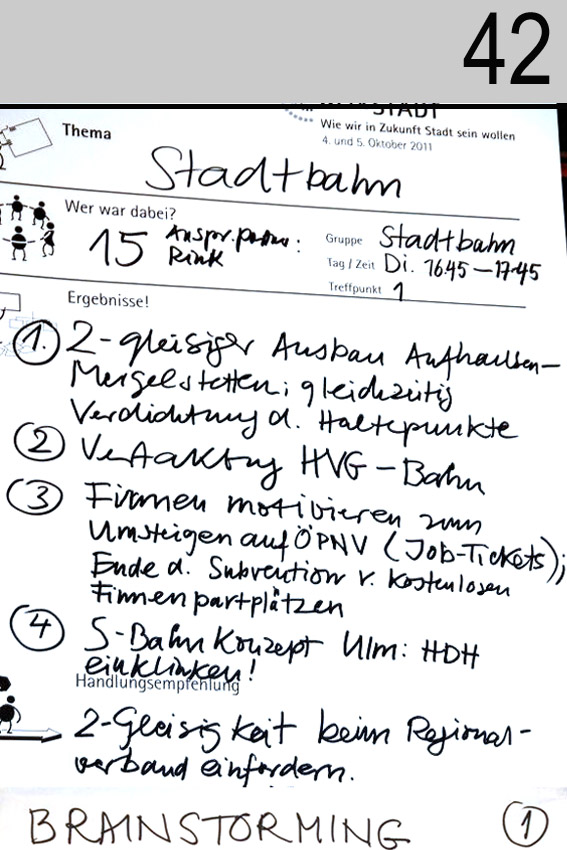 42
STADT
Thema
Wie wir in Zukunft Stadt sein wollen
4. und 5. Oktober 2011
Stadtbahn
Wer war dabei?
15 Anspr.partner:
Rink
Gruppe Stadtbahn
Tag / Zeit Di. 1645-1745
Treffpunkt 1
Ergebnisse!
1. 2-gleisiger Ausbau Aufhausen-
Mergelstetten; gleichzeitig
Verdichtung d. Haltepunkte
2 Vertaktung HVG-Bahn
3 Firmen motivieren zum
Umsteigen auf ÖPNV (Job-Tickets);
Ende d. Subvention v. kostenlosen
Firmenparkplätzen
4 S-Bahn Konzept Ulm: HDH
einklinken!
Handlungsempfehlung
2-Gleisigkeit beim Regional-
verband einfordern.
BRAINSTORMING 1